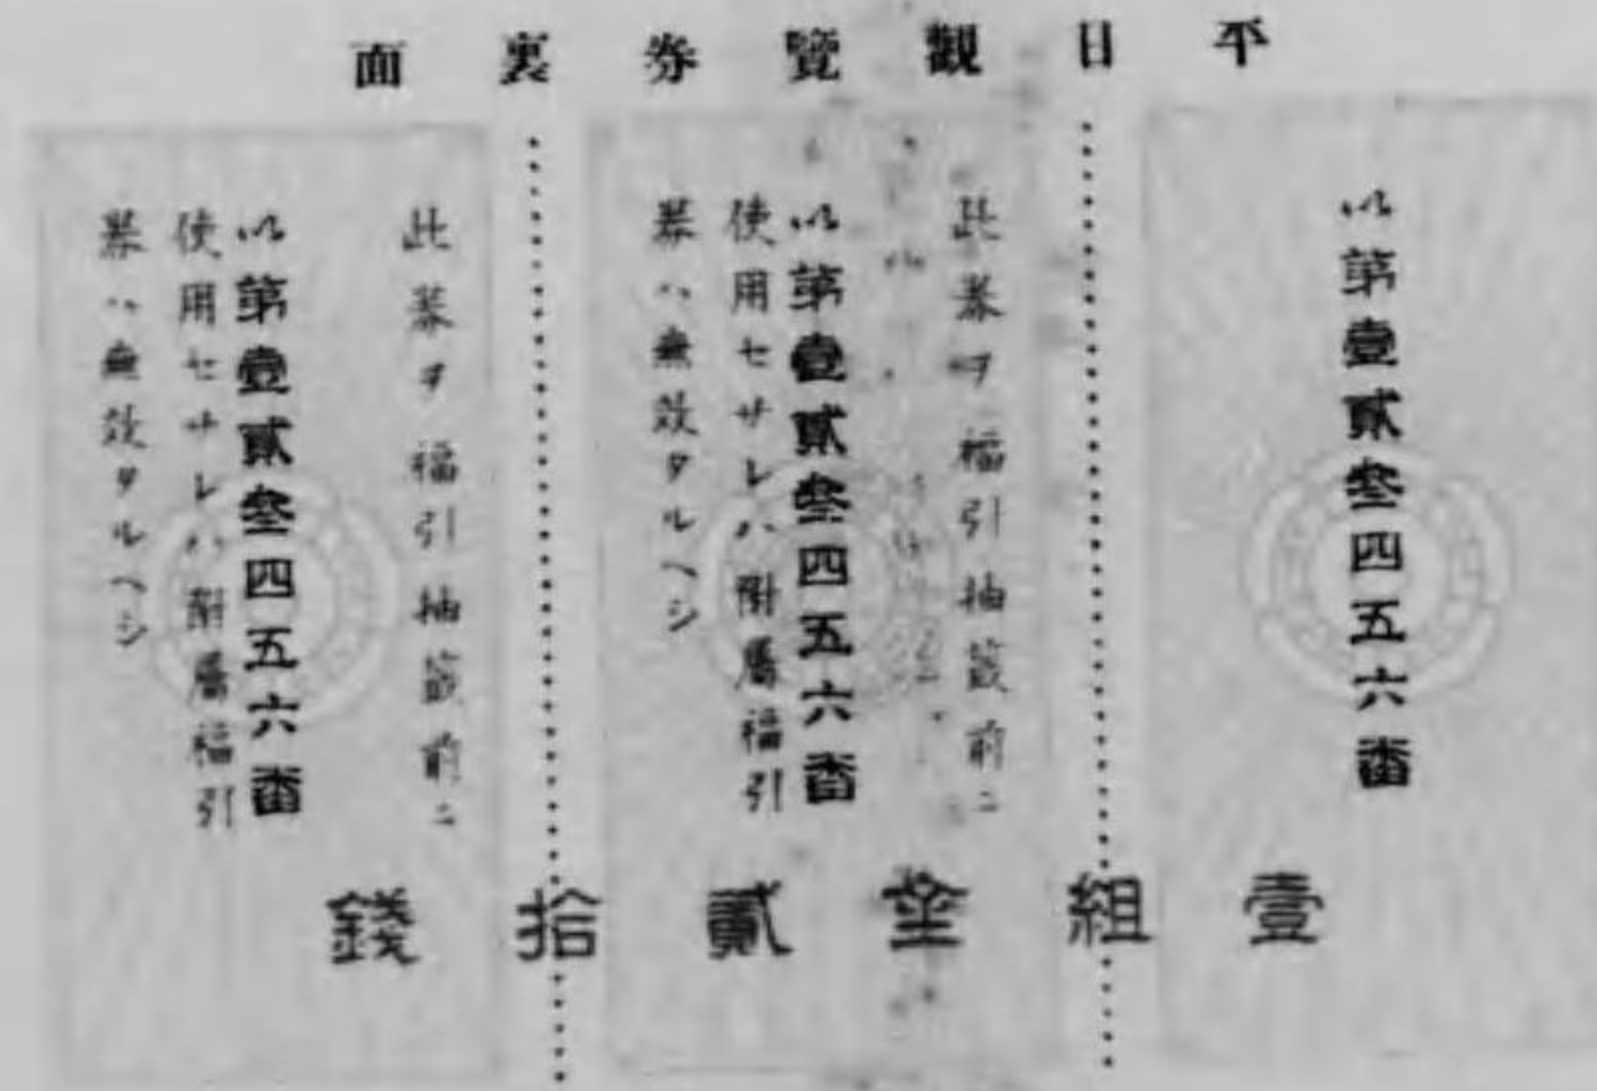 平日觀覽券裏面
以第壹貳叁四五六番
此券ヲ福引抽籤前ニ
以第壹貳叁四五六番
使用セサレハ附屬福引
券ハ無效タルヘシ
此券ヲ福引抽籤前ニ
以第壹貳叁四五六番
使用セサレハ附屬福引
券ハ無效タルヘシ
壹組金貳拾錢